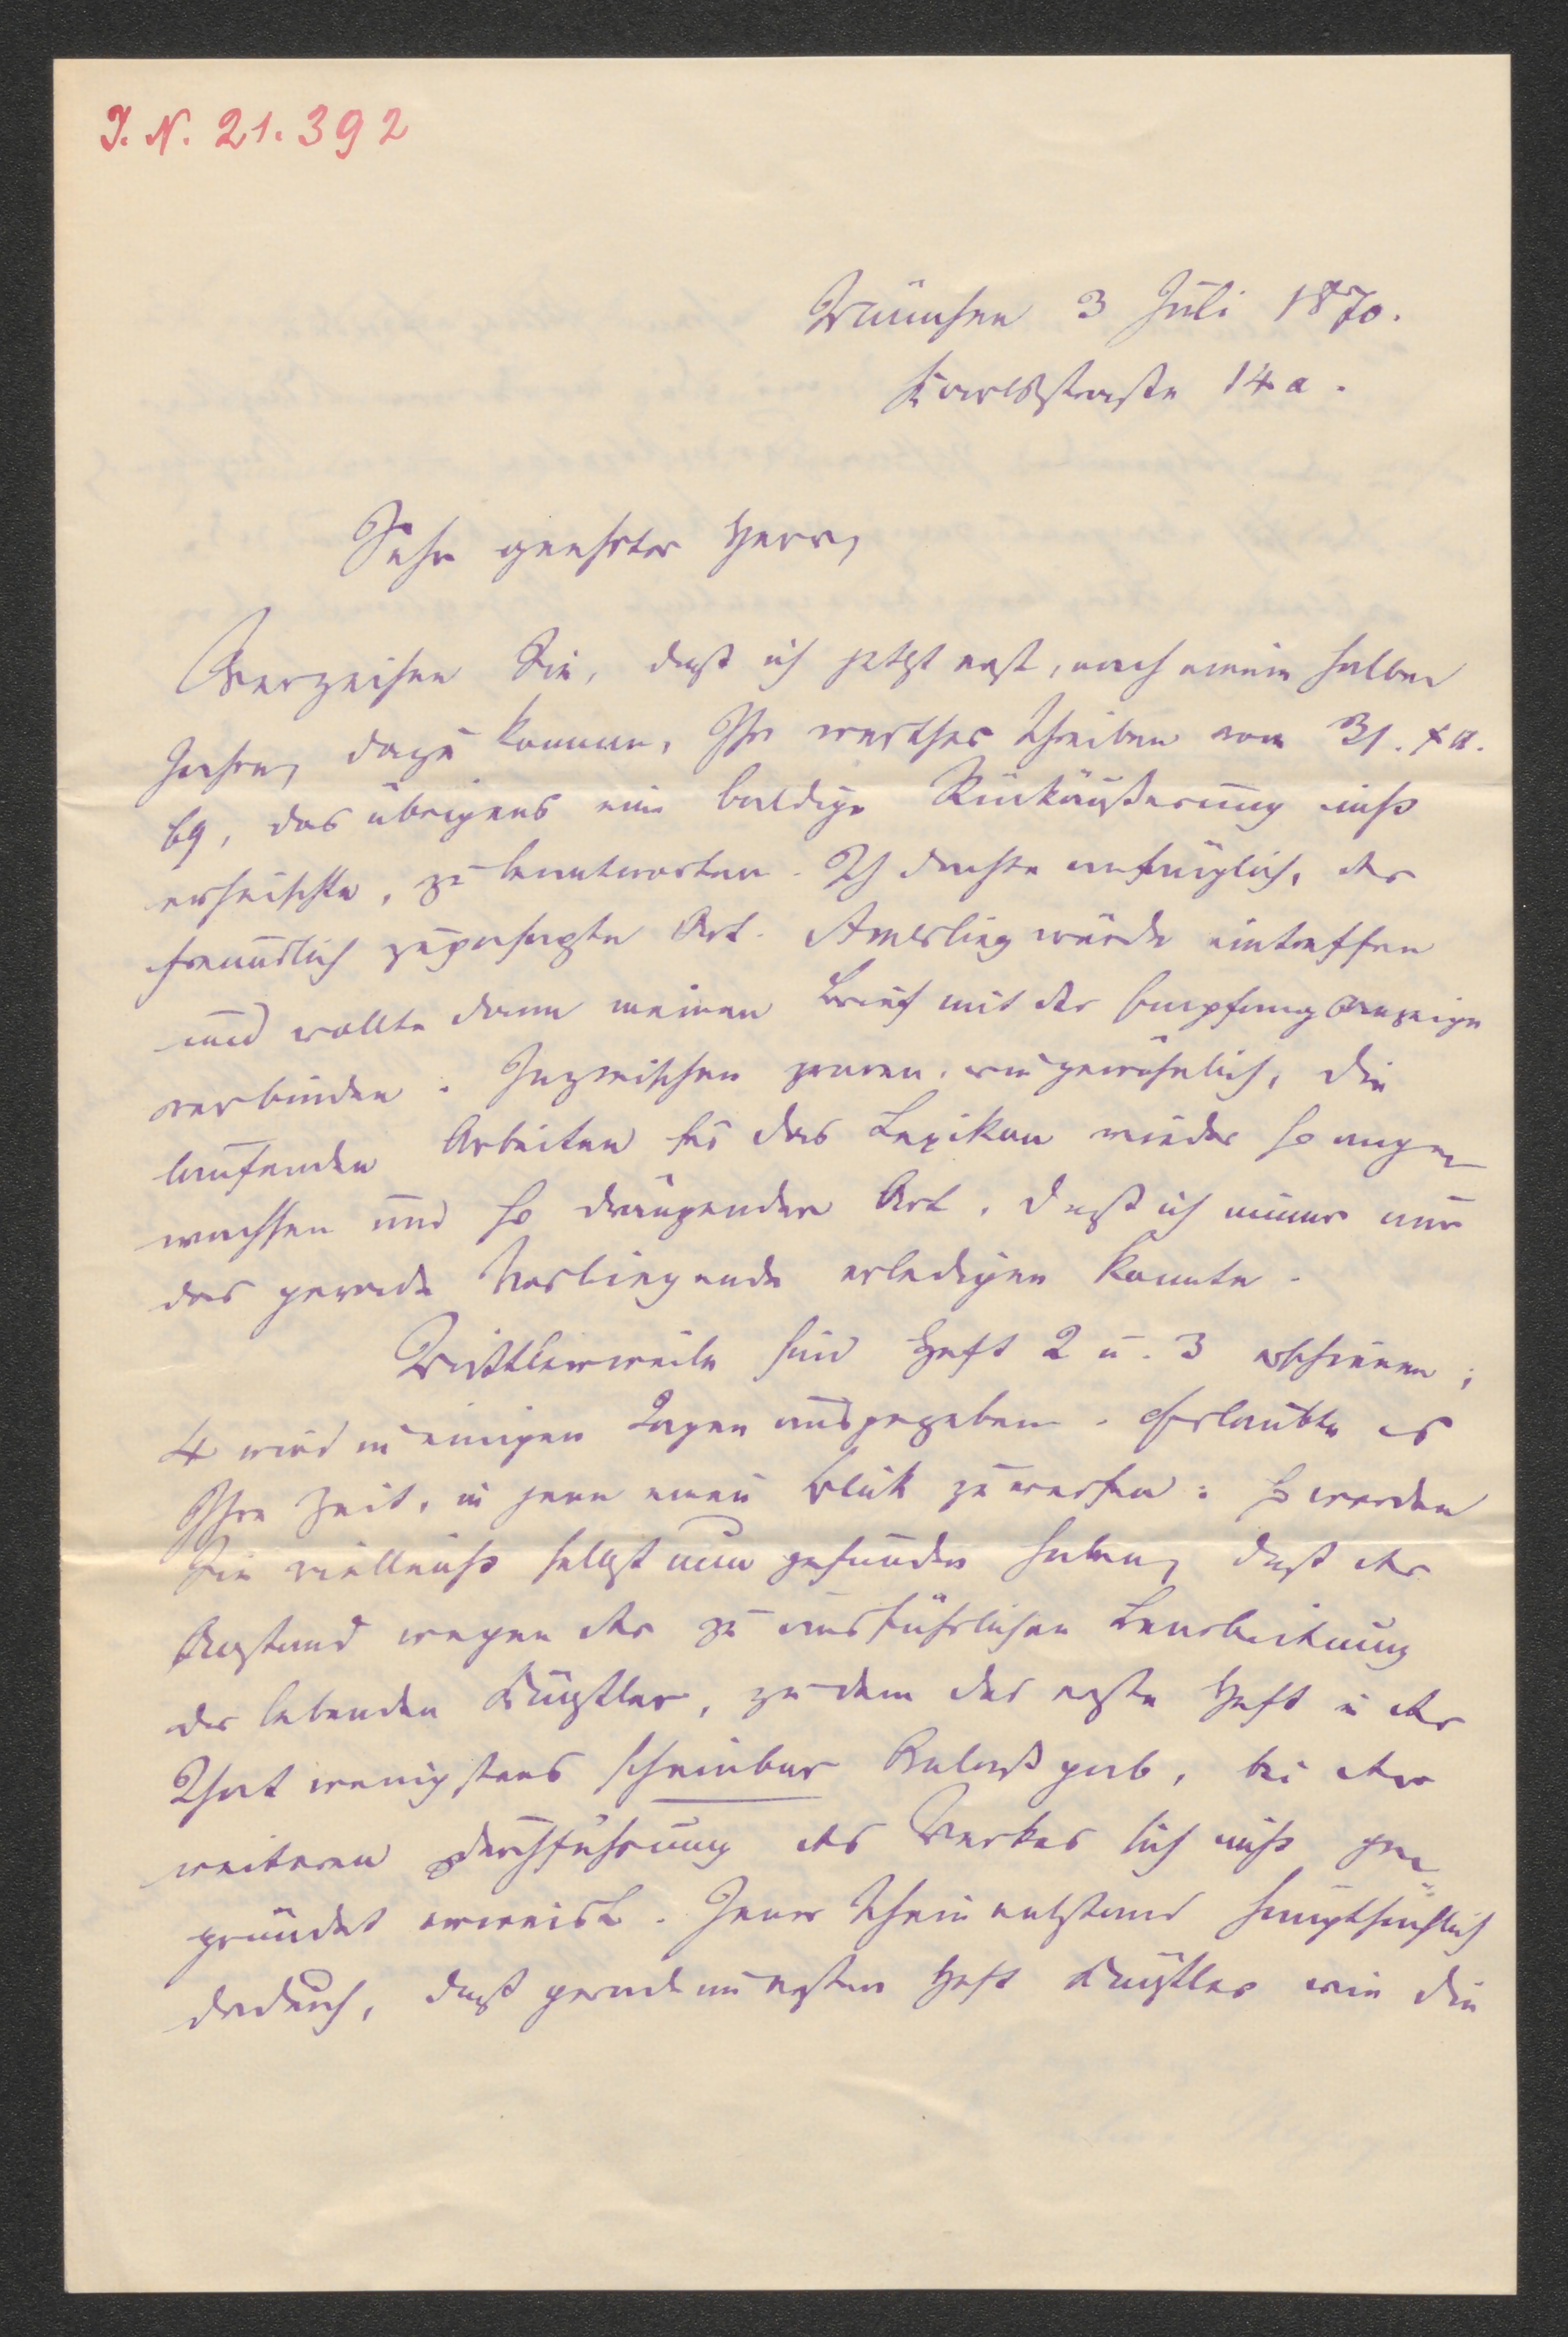 I. N. 21.392
München 3 Juli 1870.
Karlsstraße 14 a.
Sehr geehrter Herr,
Verzeihen Sie, daß ich jetzt erst, nach einem halben
Jahre, dazu komme, Ihr werthes Schreiben vom 31. XII.
69, das übrigens eine baldige Rückäußerung nicht
erheischte, zu beantworten. Ich dachte anfänglich, der
freundlich zugesagte Art. Amerling würde eintreffen
und wollte dann meinen Brief mit der Empfangsanzeige
verbinden. Inzwischen waren, wie gewöhnlich, die
laufenden Arbeiten für das Lexikon wieder so ange-
wachsen und so drängender Art, daß ich immer nur
das gerade Vorliegende erledigen konnte.
Mittlerweile sind Heft 2 u. 3 erschienen;
4 wird in einigen Tagen ausgegeben. Erlaubte es
Ihre Zeit, in jene einen Blick zu werfen: so werden
Sie vielleicht selbst nun gefunden haben, daß der
Anstand wegen der zu ausführlichen Bearbeitung
der lebenden Künstler, zu dem das erste Heft in der
That wenigstens scheinbar Anlaß gab, bei der
weiteren Durchführung des Werkes sich nicht ge-
gründet erweist. Jener Schein entstand hauptsächlich
dadurch, daß gerade im ersten Heft Künstler wie die